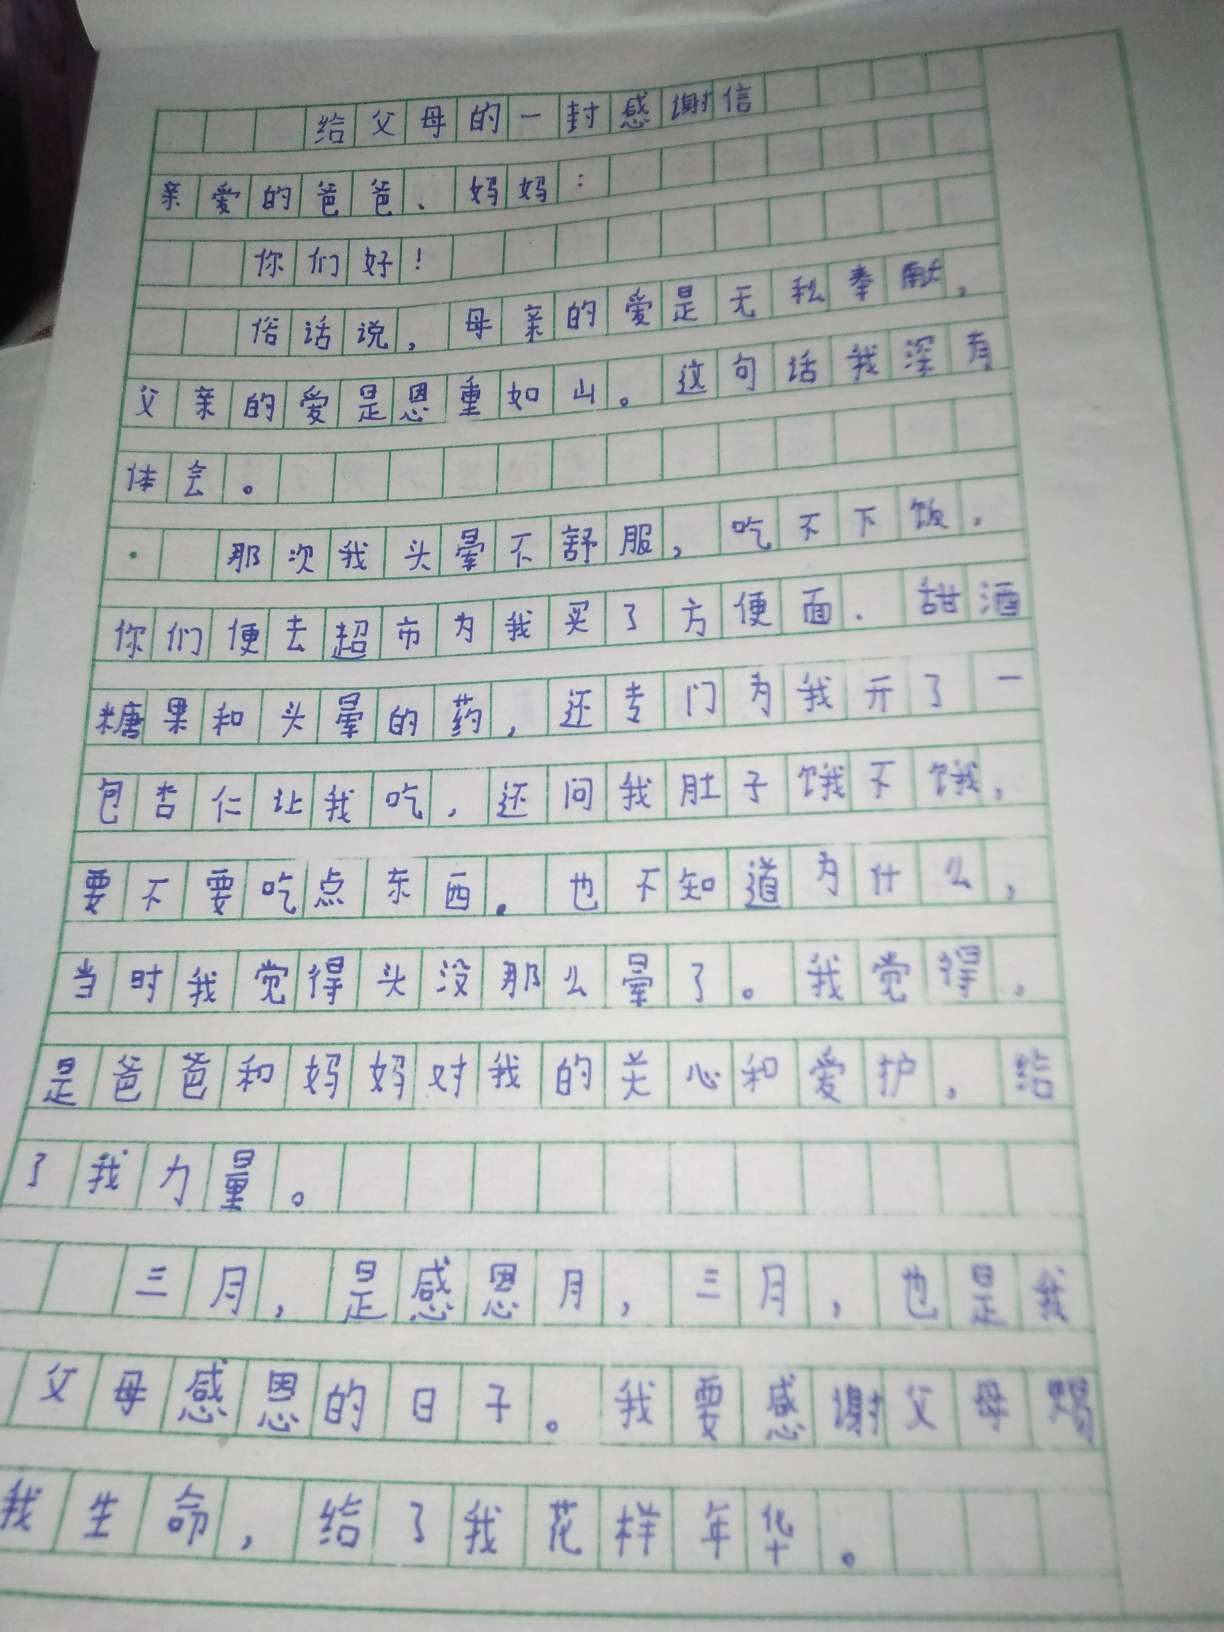 给父母的一封感谢信
亲爱的爸爸、妈妈：
你们好！
俗话说，母亲的爱是无私奉献，
父亲的爱是恩重如山。这句话我深有
体会。
那次我头晕不舒服，吃不下饭，
你们便去超市为我买了方便面、甜酒
糖果和头晕的药，还专门为我开了一
包杏仁让我吃，还问我肚子饿不饿，
要不要吃点东西。也不知道为什么，
当时我觉得头没那么晕了。我觉得，
是爸爸和妈妈对我的关心和爱护，给
了我力量。
三月，是感恩月，三月，也是我
父母感恩的日子。我要感谢父母赐
我生命，给了我花样年华。